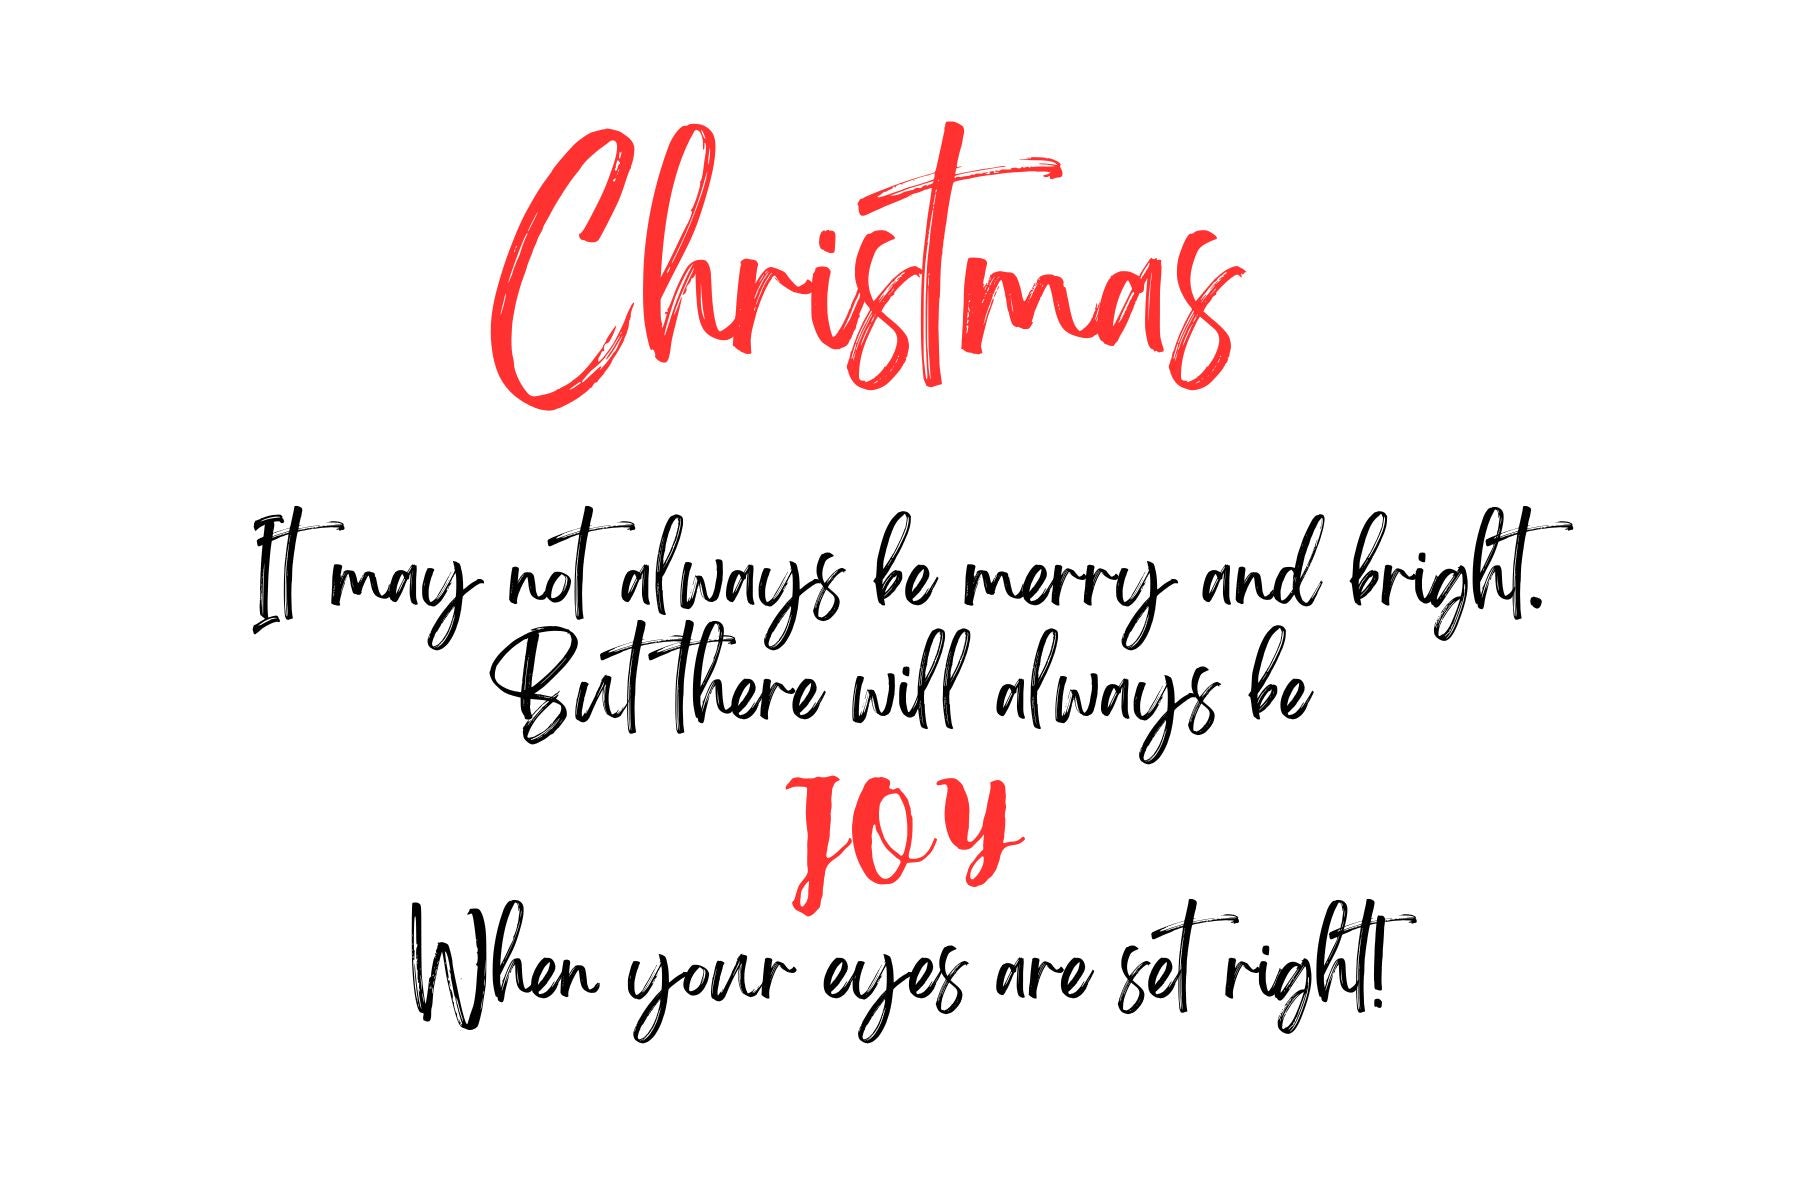 Christmas
It may not always be merry and bright.
But there will always be
JOY
When your eyes are set right!